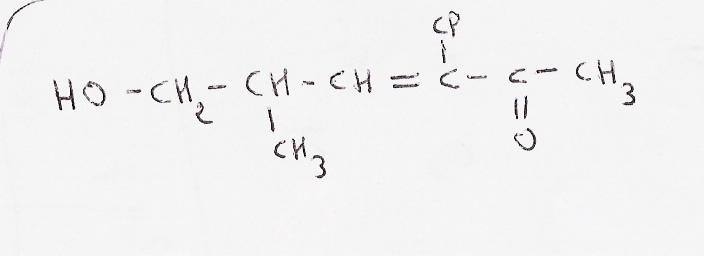 Cl
HO - CH₂ - CH - CH = C - C - CH₃
CH₃ O